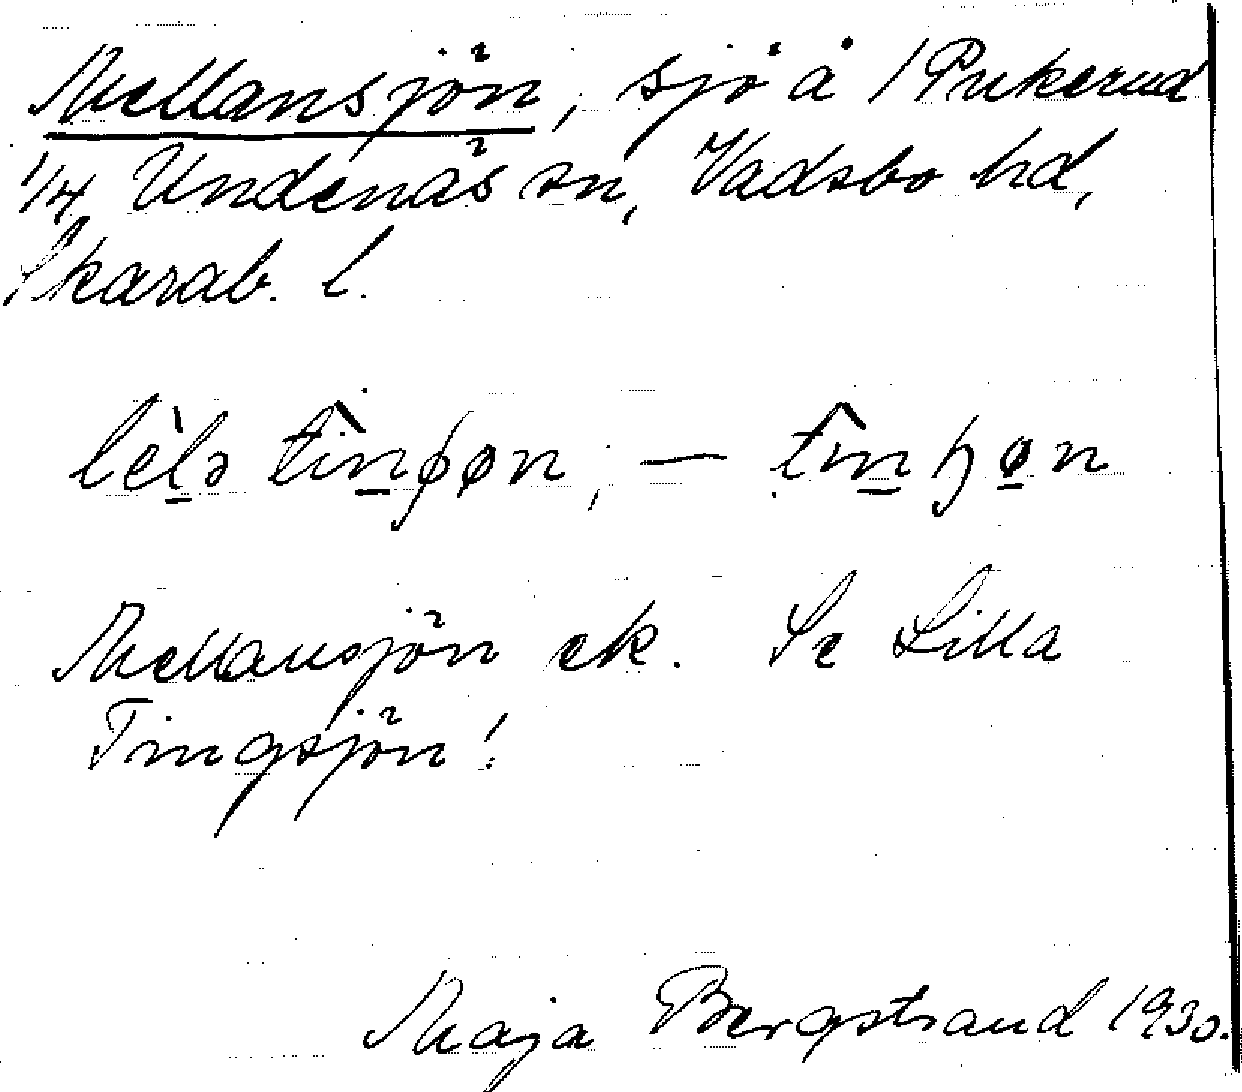 Mellansjön, sjö å / Pukerud
1/4 Undenäs sn, Vadsbo hd,
Skarab. l.
Mellansjön ek. Se Lilla
Tingsjön!
Maja Bergstrand 1930.